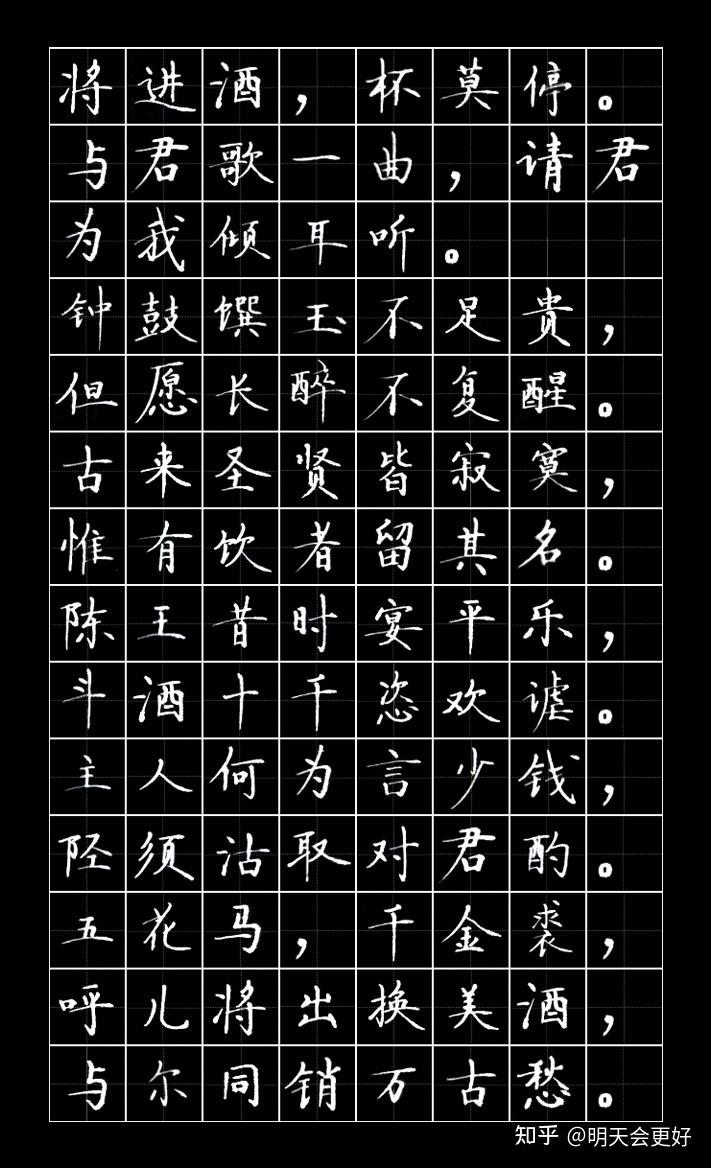 将进酒，杯莫停。
与君歌一曲，请君
为我倾耳听。
钟鼓馔玉不足贵，
但愿长醉不复醒。
古来圣贤皆寂寞，
惟有饮者留其名。
陈王昔时宴平乐，
斗酒十千恣欢谑。
主人何为言少钱，
陉须沽取对君酌。
五花马，千金裘，
呼儿将出换美酒，
与尔同销万古愁。
知乎 @明天会更好